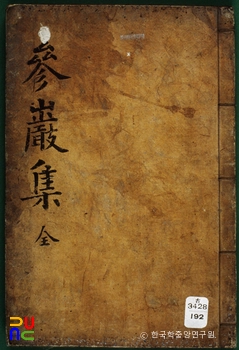 參巖集
全
3428
192
© 한국학중앙연구원